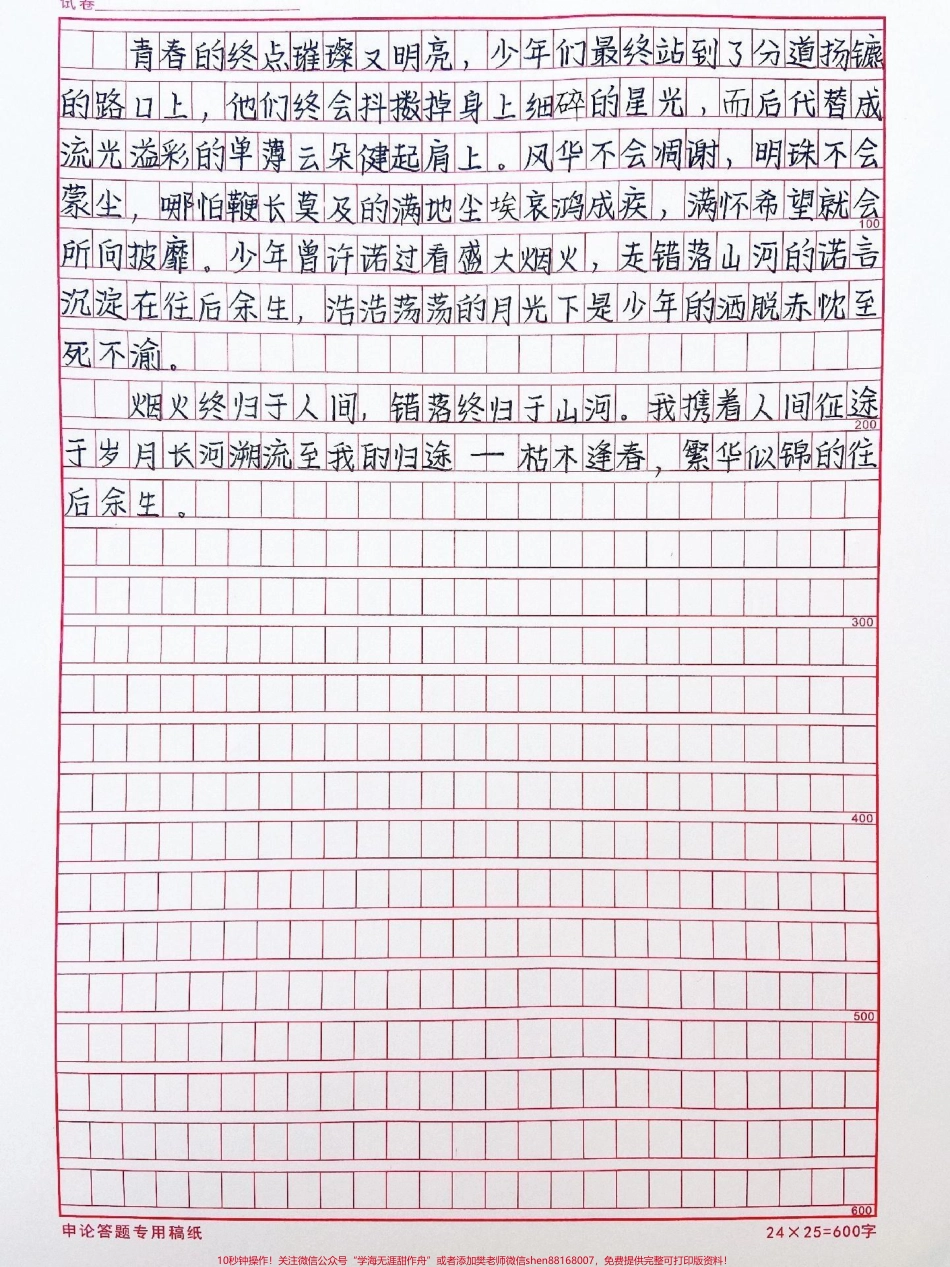 试卷
青春的终点璀璨又明亮，少年们最终站到了分道扬镳
的路口上，他们终会抖擞掉身上细碎的星光，而后代替成
流光溢彩的单薄云朵健起肩上。风华不会凋谢，明珠不会
蒙尘，哪怕鞭长莫及的满地尘埃哀鸿成疾，满怀希望就会
100
所向披靡。少年曾许诺过看盛大烟火，走错落山河的诺言
沉淀在往后余生，浩浩荡荡的月光下是少年的洒脱赤忱至
死不渝。
烟火终归于人间，错落终归于山河。我携着人间征途
200
于岁月长河溯流至我的归途一枯木逢春，繁华似锦的往
后余生。
300
400
500
600
申论答题专用稿纸 24×25=600字
10秒钟操作！关注微信公众号“学海无涯甜作舟”或者添加樊老师微信shen88168007，免费提供完整可打印版资料！